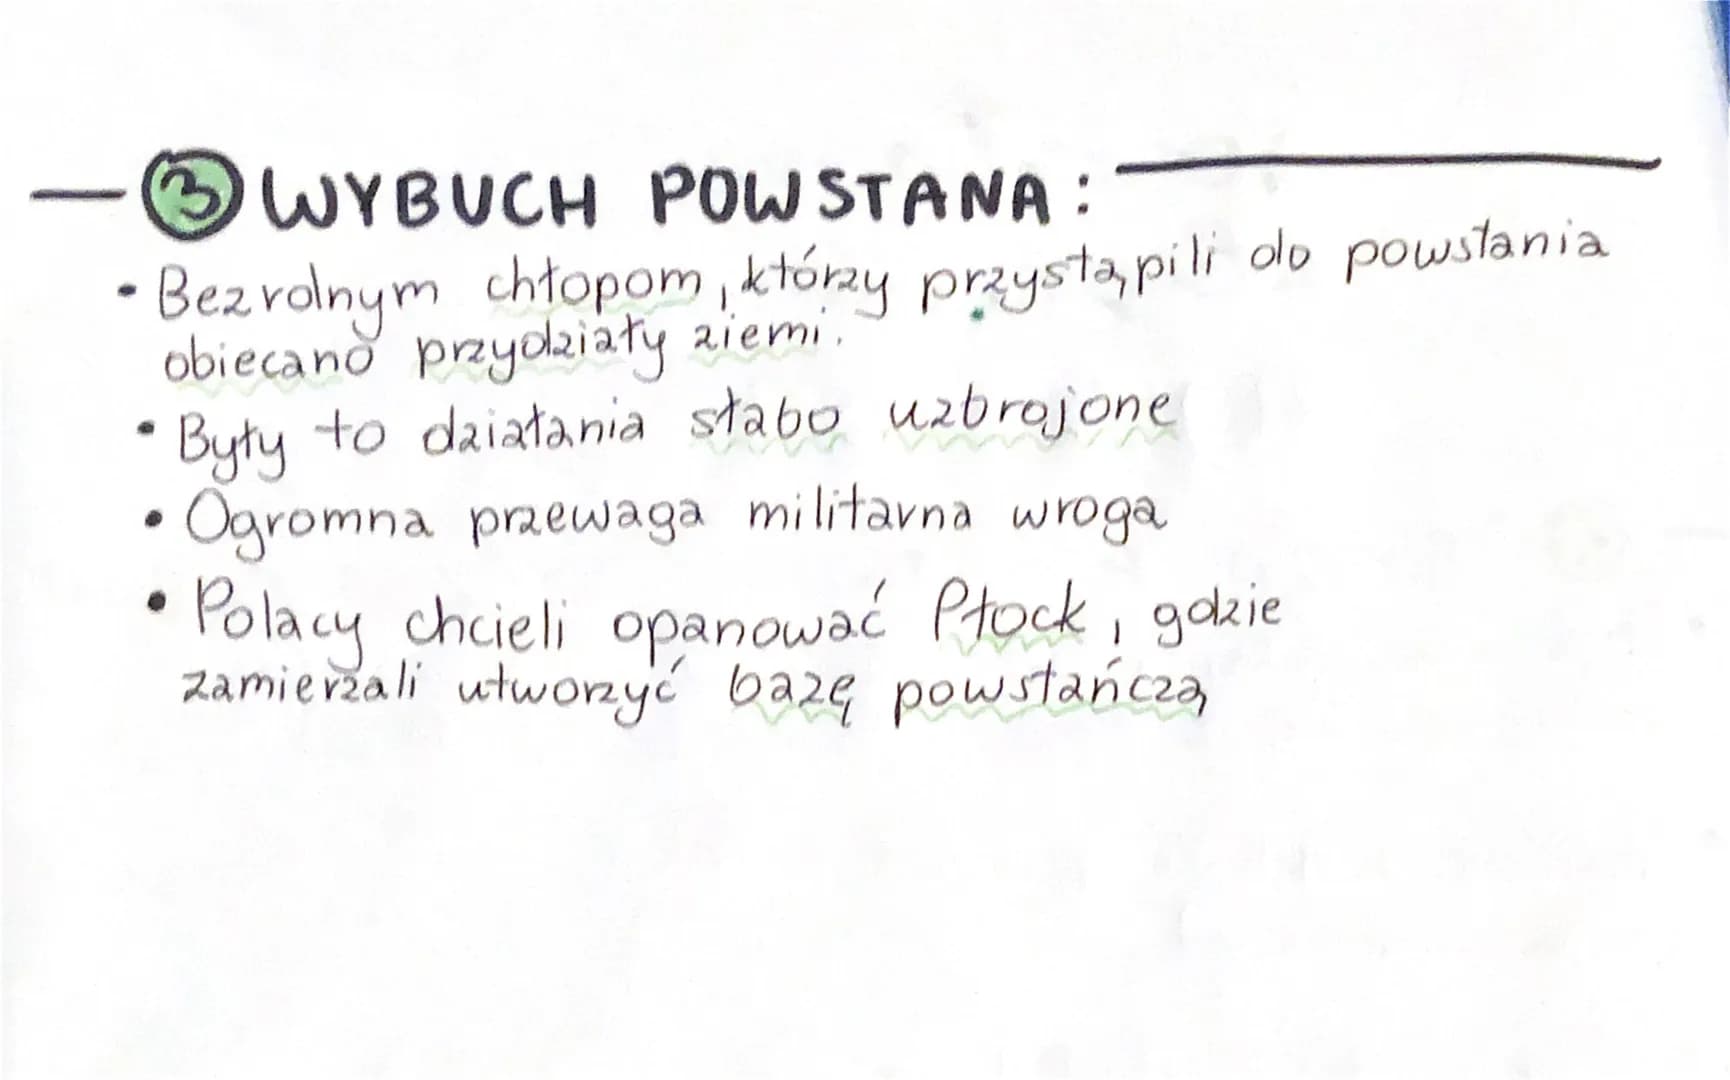 3 WYBUCH POWSTANA:
• Bezrolnym chłopom, którzy przystąpili do powstania
obiecano przydziały ziemi.
• Były to działania słabo uzbrojone
• Ogromna przewaga militarna wroga
• Polacy chcieli opanować Płock, gdzie
zamierzali utworzyć bazę powstańczą